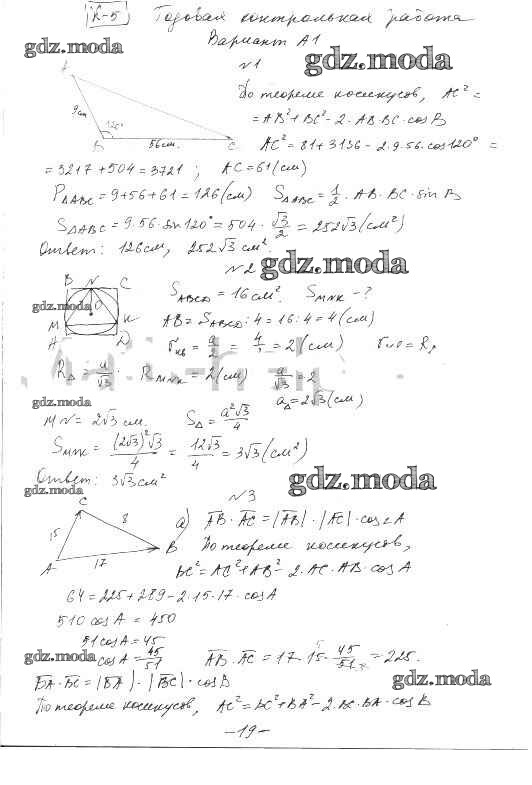 К-5 Годовая контрольная работа
Вариант А1
gdz.moda
gdz.moda
№1
A
9см
120°
B
56см.
C
По теореме косинусов, AC² =
= AB² + BC² - 2·AB·BC·cos B
AC² = 81 + 3136 - 2·9·56·cos120° =
= 3217 + 504 = 3721; AC = 61 (см)
P△ABC = 9 + 56 + 61 = 126 (см) S△ABC = 1/2 · AB · BC · sin B
S△ABC = 9·56·sin120° = 504 · √3/2 = 252√3 (см²)
Ответ: 126 см, 252√3 см².
№2
gdz.moda
B N C
O
M K
A D
gdz.moda
S ABCD = 16 см². S MNK - ?
AB = S ABCD : 4 = 16 : 4 = 4 (см)
r кв = a/2 = 4/2 = 2 (см) r кв = R△
R△ = a/√3. R MNK = 2 (см) a/√3 = 2
a△ = 2√3 (см)
gdz.moda
MN = 2√3 см. S△ = a²√3/4
S MNK = (2√3)²√3/4 = 12√3/4 = 3√3 (см²)
Ответ: 3√3 см²
gdz.moda
gdz.moda
№3
C
15
8
A
17
B
а) AB · AC = |AB| · |AC| · cos∠A
По теореме косинусов,
BC² = AC² + AB² - 2·AC·AB·cos A
64 = 225 + 289 - 2·15·17·cos A
510 cos A = 450
51 cos A = 45
gdz.moda
cos A = 45/51 AB · AC = 17·15·45/51 = 225.
BA · BC = |BA| · |BC| · cos B
gdz.moda
По теореме косинусов, AC² = BC² + BA² - 2·BC·BA·cos B
-19-